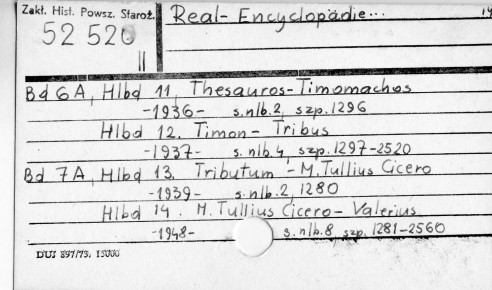 Zakł. Hist. Powsz. Staroż.
52 520
II
Real-Encyclopädie...
Bd 6A, Hlbd 11, Thesauros-Timomachos
-1936- s.nlb.2, szp.1296
Hlbd 12. Timon-Tribus
-1937- s.nlb.4, szp.1297-2520
Bd 7A, Hlbd 13. Tributum-M.Tullius Cicero
-1939- s.nlb.2, 1280
Hlbd 14. M.Tullius Cicero-Valerius
-1948- s.nlb.8, szp.1281-2560
DUJ 897/73. 15000